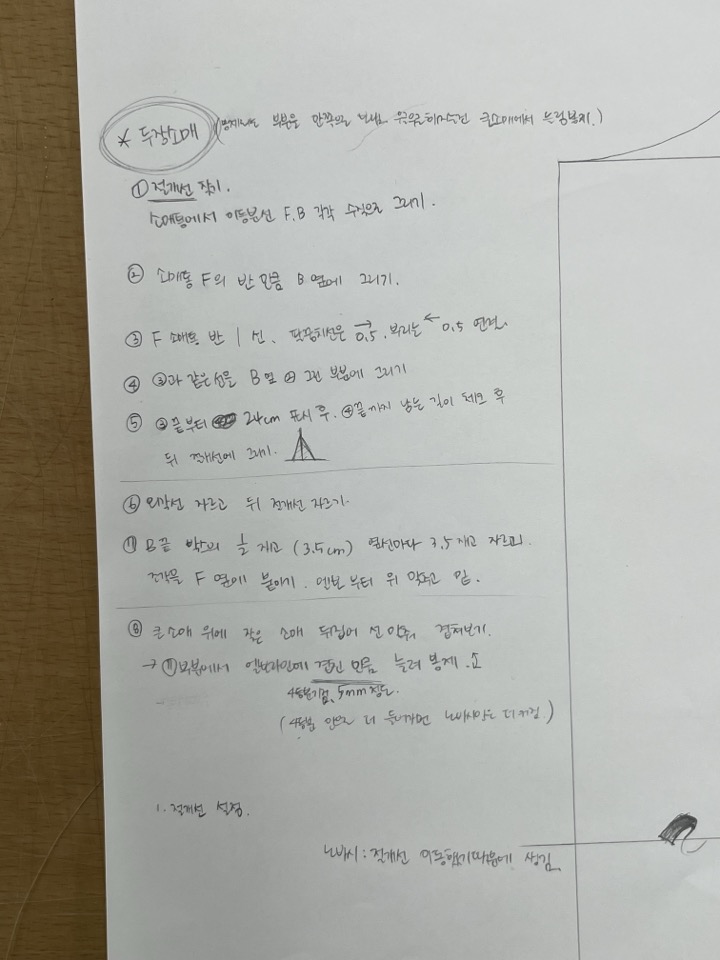 * 두장소매 ( 부분은 안쪽으로 큰소매에서 )
① 절개선 잡기.
소매통에서 이등분선 F.B 각각 수직으로 그리기.
② 소매통 F의 반 만큼 B 옆에 그리기.
③ F 소매통 반 1 선, 팔꿈치선은 → 0.5, 부리는 ← 0.5 연결.
④ ③과 같은선을 B 옆 그린 부분에 그리기
⑤ ③끝부터 24cm 표시 후. ④끝까지 남는 길이 체크 후
뒤 절개선에 그리기.
⑥ 외곽선 자르고 뒤 절개선 자르기.
⑦ B끝 박스의 1/2 재고 (3.5cm) 옆선마다 3.5 재고 자르고.
조각을 F 옆에 붙이기. 엘보부터 위 맞추고 밑.
⑧ 큰소매 위에 작은 소매 뒤집어 선 맞춰 겹쳐보기.
→ ⑦부분에서 엘보라인에 겹친 만큼 늘려 봉제.
5mm정도.
(4등분 안으로 더 들어가면 노바시양도 더 커짐)
1. 절개선 설정.
노바시 : 절개선 이동했기때문에 생김.